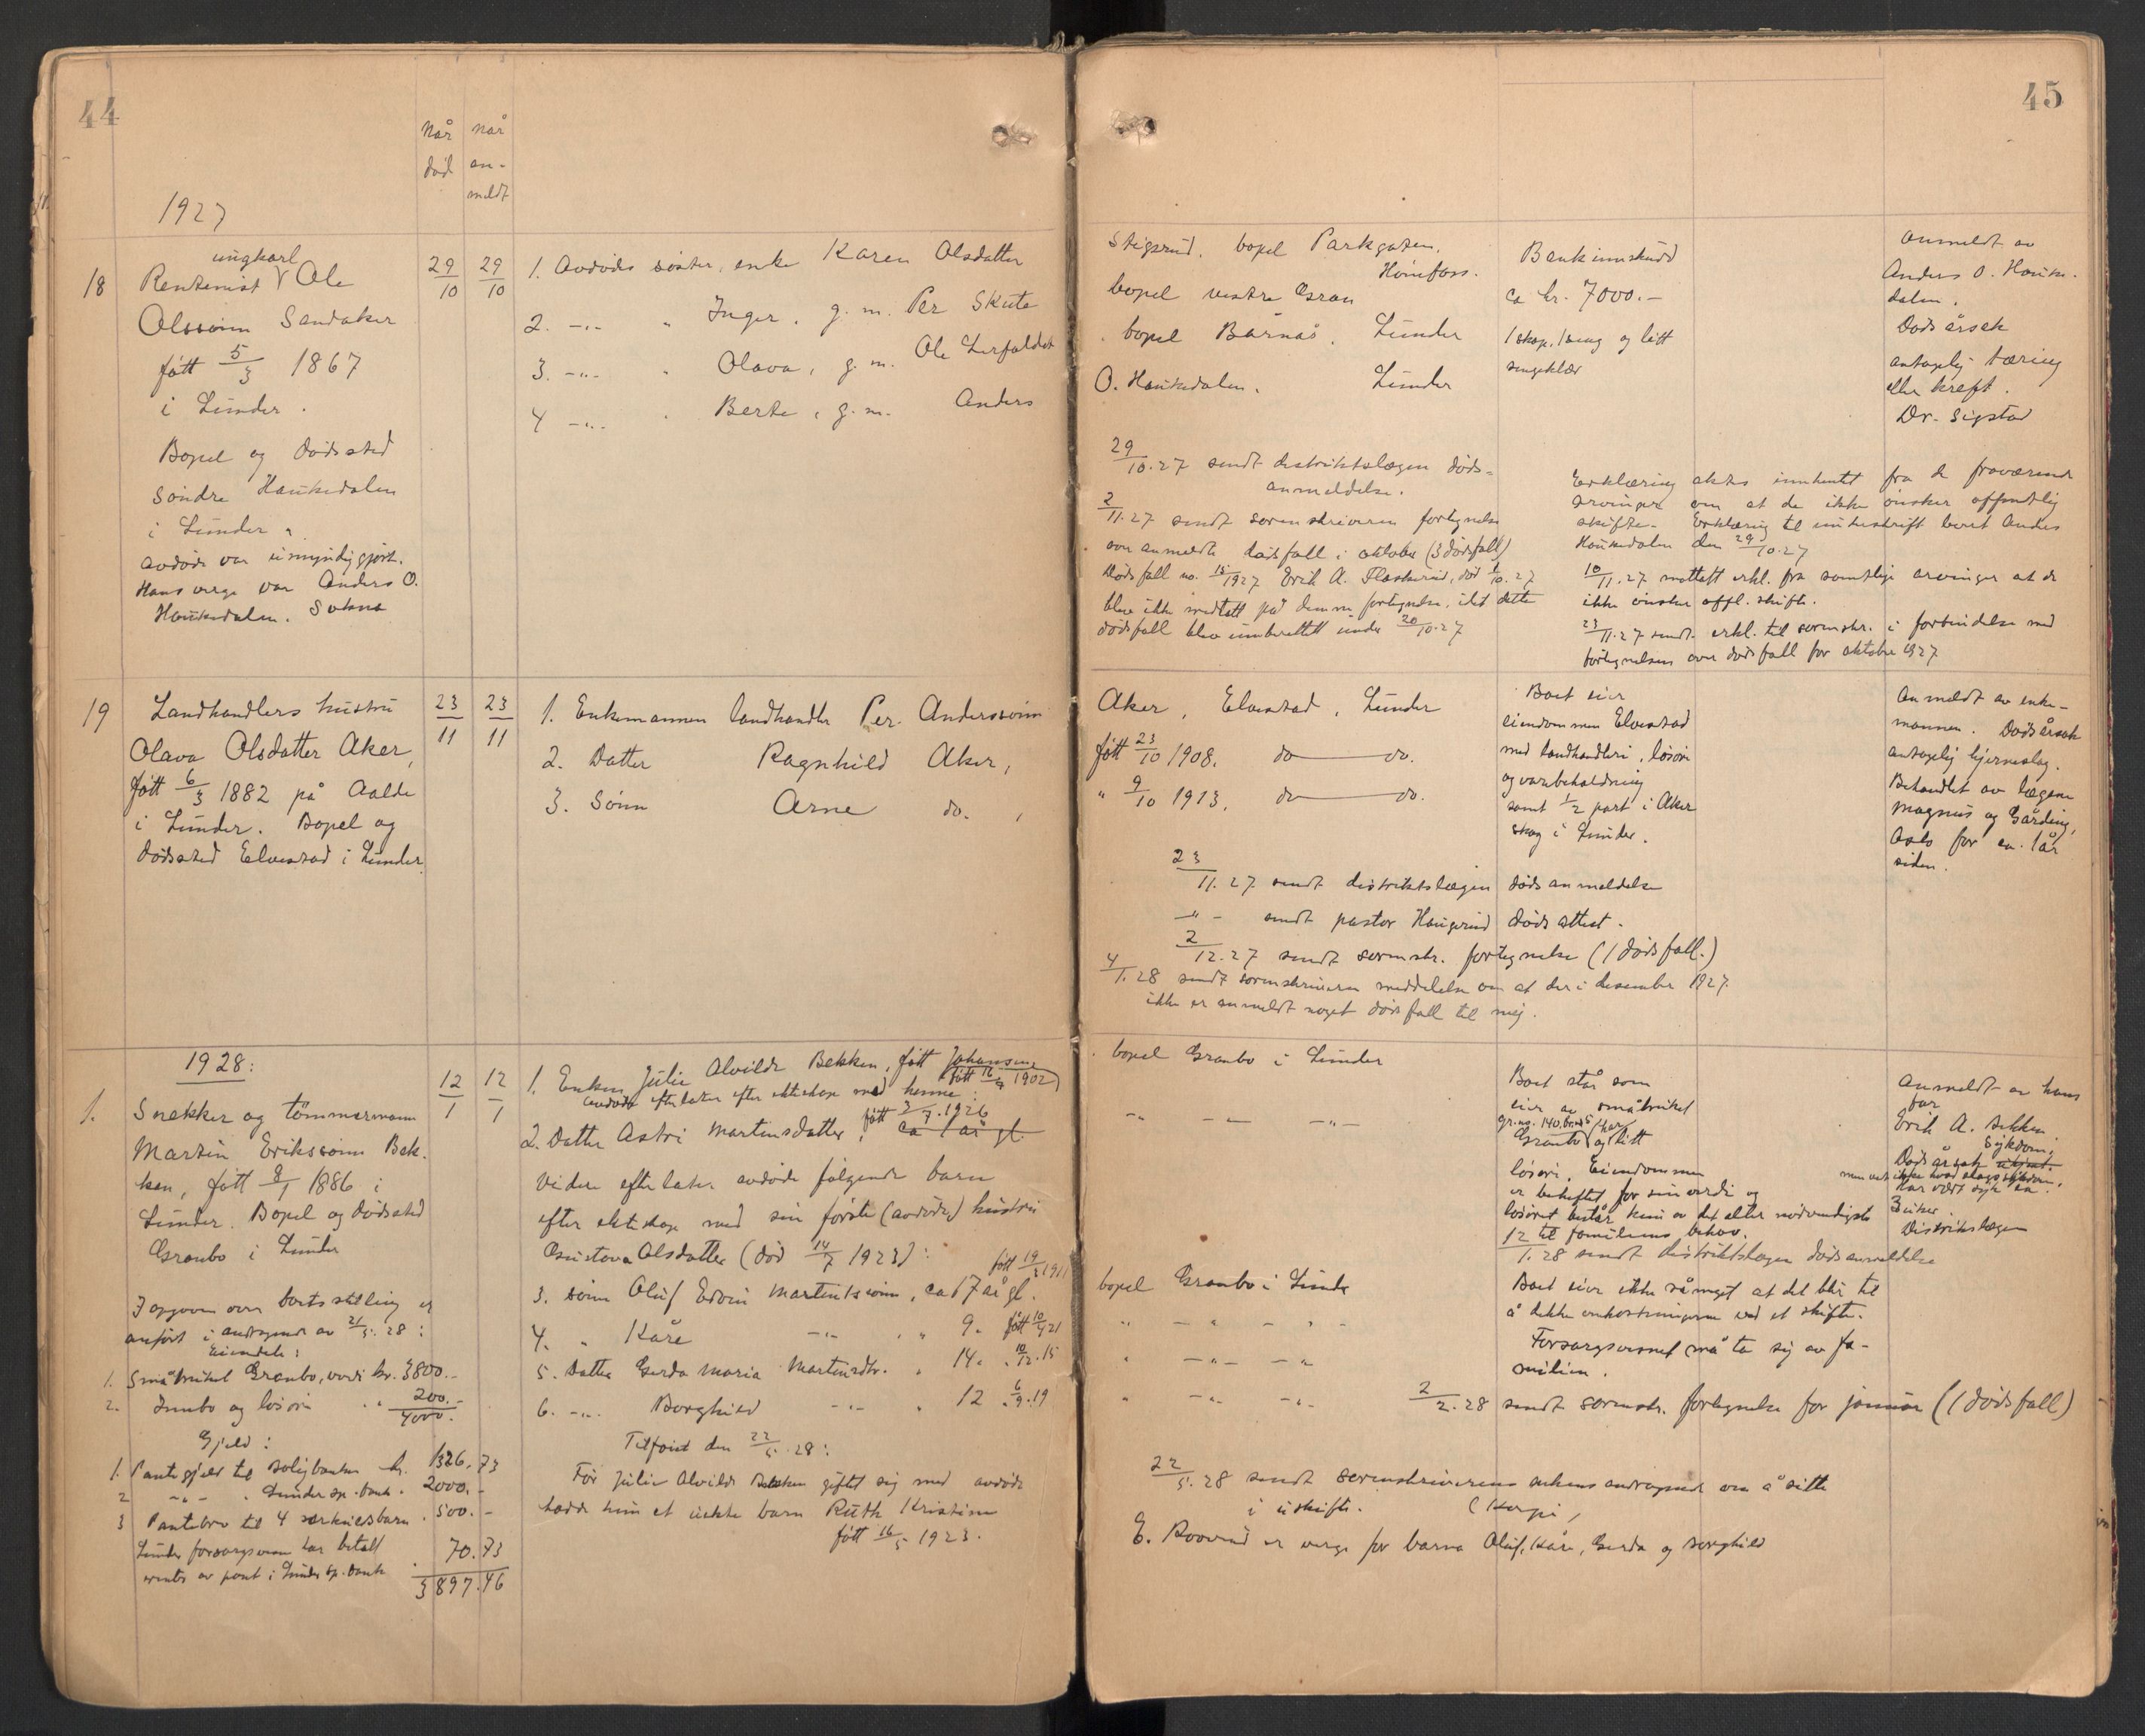 44
Når død
når an-meldt
1927
18
ungkarl
Rentenist Ole
Olssønn Sandaker
født 5/3 1867
i Lunder.
Bopel og dødssted
Søndre Haukedalen
i Lunder.
avdøde var umyndiggjort.
Hans verge var Anders O.
Haukedalen. Sokna
29/10
29/10
1. Avdødes søster, enke Karen Olsdatter
2. -"- " Inger, g.m. Per Skute
3. -"- " Olava, g.m. Ole Lerfaldet
4 -"- " Berte, g.m. Anders
19
Landhandlers hustru
Olava Olsdatter Aker,
født 6/3 1882 på
i Lunder. Bopel og
dødssted Elvestad i Lunder.
23/11
23/11
1. Enkemannen landhandler Per Anderssønn
2. Datter Ragnhild Aker,
3. Sønn Arne do. ,
1928:
1.
Snekker og tømmermann
Martin Erikssønn Bek-
ken, født 8/1 1886 i
Lunder. Bopel og dødssted
Granbo i Lunder
12/1
12/1
1. Enken Julie Alvilde Bekken, født Johansen,
født 16/9 1902
avdøde efterlater efter ekteskap med henne:
2. Datter Astri Martinsdatter, født 3/7.1926 ca 1 år gl.
Videre efterlater avdøde følgende barn
efter ekteskap med sin første (avdøde) hustru
Gustava Olsdatter (død 14/7 1923):
3. sønn Oluf Edvin Martinssønn, ca 17 år gl. født 19/3 1911
4. " Kåre -"- " " 9. født 10/9 21
5. Datter Gerda Maria Martinsdtr. " 14. " 10/12.15
6. -"- Borghild -"- " 12 " 6/9.19
Tilføiet den 22/5.28:
Før Julie Alvilde Bekken giftet sig med avdøde
hadde hun et uekte barn Ruth Kristine
født 16/5 1923.
I opgaven over boets stilling er
anført i andragende av 21/5.28:
Eiendele:
1. Småbruket Granbo, verdi kr. 3800.-
2. Innbo og løsøre " " 200.-
4000.-
Gjeld:
1. Pantegjeld til Boligbanken kr. 1326.73
2 -"- " Lunder sp.bank. 2000.-
3 Pantebrev til 4 særkuldsbarn. 500.-
Lunder forsorgsvesen har betalt
renter av pant i Lunder Sp.bank. 70.73
3897.46
45
Stigsrud, bopel Parkgaten,
Hønefoss.
bopel vestre Gran
bopel Bårnås, Lunder
O. Haukedalen, Lunder
Bankinnskudd
ca kr. 7000.-
1 skap, 1 seng og litt
sengeklær
Anmeldt av
Anders O. Hauke-
dalen.
Dødsårsak
antagelig tæring
eller kreft.
Dr. Sigstad
29/10.27 sendt distriktslægen døds-
anmeldelse.
2/11.27 sendt sorenskriveren fortegnelse
over anmeldte dødsfall i oktober (3 dødsfall)
Dødsfall no. 15/1927 Erik A. Flaskerud, død 1/10.27
blev ikke medtatt på denne fortegnelse, idet dette
dødsfall blev innberettet under 20/10.27
Erklæring aktes innhentet fra de fraværende
arvinger om at de ikke ønsker offentlig
skifte. Erklæring til underskrift levert Anders
Haukedalen den 29/10.27
10/11.27 mottatt erkl. fra samtlige arvinger at de
ikke ønsker offl. skifte.
23/11.27 sendt erkl. til sorenskr. i forbindelse med
fortegnelsen over dødsfall for oktober 1927
Aker, Elvestad, Lunder
født 23/10 1908. do — do.
" 9/10 1913, do — do.
Boet eier
eiendommen Elvestad
med landhandleri, løsøre
og varebeholdning
samt 1/2 part i Aker
skog i Lunder.
Anmeldt av enke-
mannen. Dødsårsak
antagelig hjerneslag.
Behandlet av lægene
Magnus og Gårding,
Oslo for ca. 1 år
siden.
23/11.27 sendt distriktslægen dødsanmeldelse
-"- sendt pastor Haugerud dødsattest.
2/12.27 sendt sorenskr. fortegnelse (1 dødsfall.)
4/1.28 sendt sorenskriveren meddelelse om at der i desember 1927
ikke er anmeldt noget dødsfall til mig.
bopel Granbo i Lunder
-"- -"- -"-
Boet står som
eier av småbruket
gr.no. 140. br.no 5
Granbo og litt
løsøre. Eiendommen
er beheftet for sin verdi og
løsøret består kun av det aller nødvendigste
til familiens behov.
12/1.28 sendt distriktslægen dødsanmeldelse
Anmeldt av hans
far
Erik A. Bekken.
Dødsårsak ukjent. Sykdom,
men vet ikke hvad slags sykdom.
Har vært syk ca.
3 uker.
Distriktslægen
Boet eier ikke så meget at det blir til
å dekke omkostningene ved et skifte.
Forsorgsvesenet må ta sig av fa-
milien.
bopel Granbo i Lunder
" -"- " - "
" -"- -"-
" -"- -"-
2/2.28 sendt sorenskr. fortegnelse for januar (1 dødsfall)
22/5.28 sendt sorenskriveren enkens andragende om å sitte
i uskifte. (Kopi)
E. Roverud er verge for barna Oluf, Kåre, Gerda og Borghild